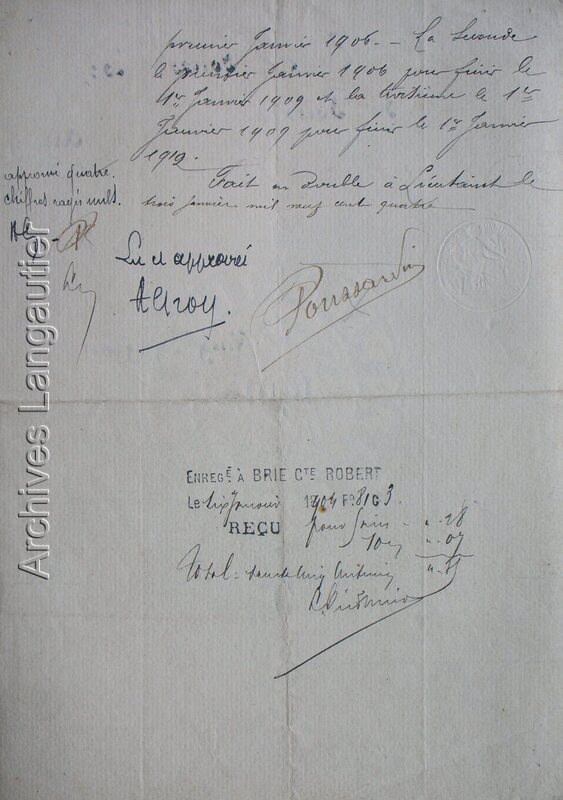 premier Janvier 1906. – La Seconde
le premier Janvier 1906 pour finir le
1er Janvier 1909 et la troisième le 1er
Janvier 1909 pour finir le 1er Janvier
1912.
Fait en double à Lieusaint le
trois janvier mil neuf cent quatre
approuvé quatre
chiffres rayés nuls.
Lu et approuvé
ALeroy.
Poussardin
ENREGé À BRIE CTE ROBERT
Le six Janvier 1904 Fo 81 C 3
REÇU pour
Total :
Archives Langautier